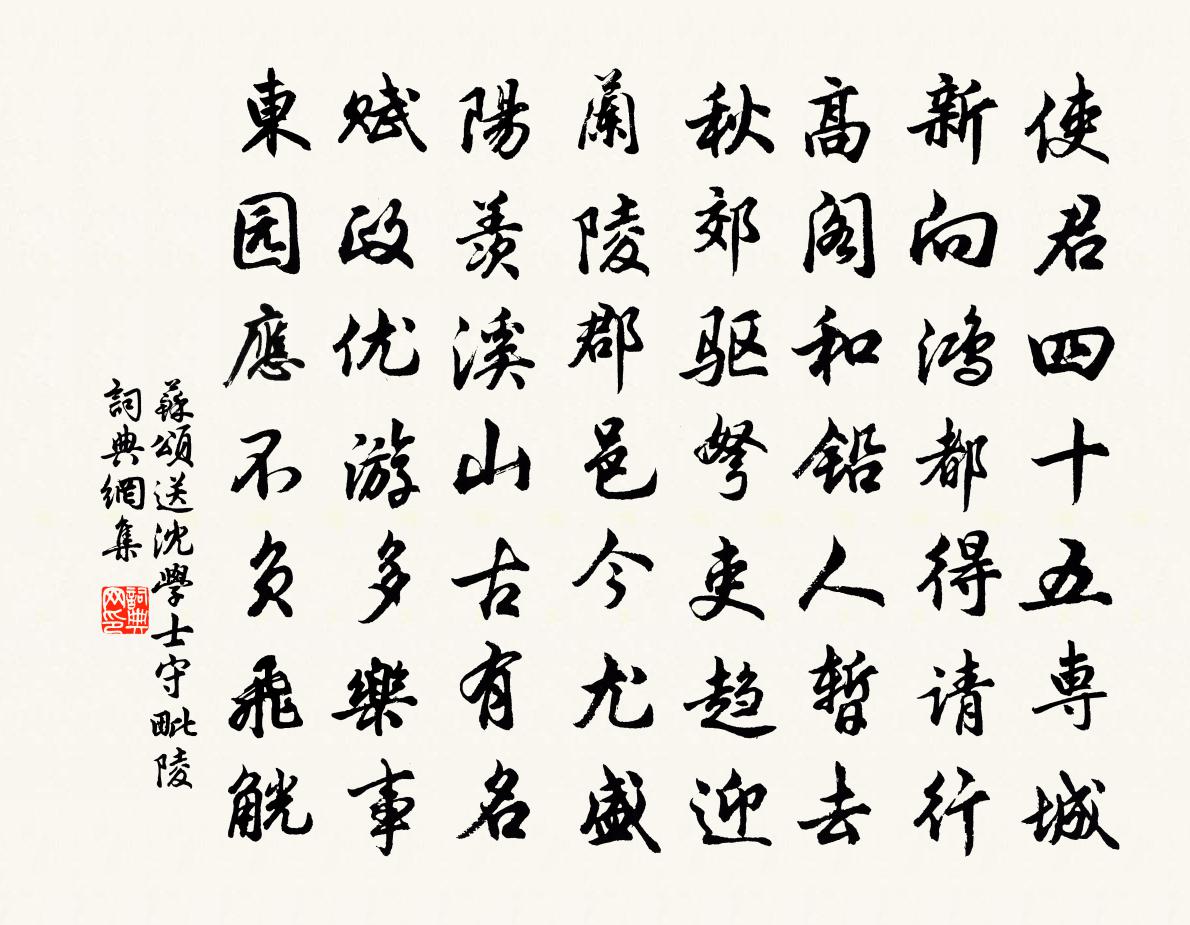 使君四十五専城
新向鸿都得请行
高阁和铅人暂去
秋郊驱弩吏趋迎
蘭陵郡邑今尤盛
陽羡溪山古有名
赋政优游多樂事
東园應不负飛觥
蘇頌送沈學士守毗陵
詞典網集
詞典网印